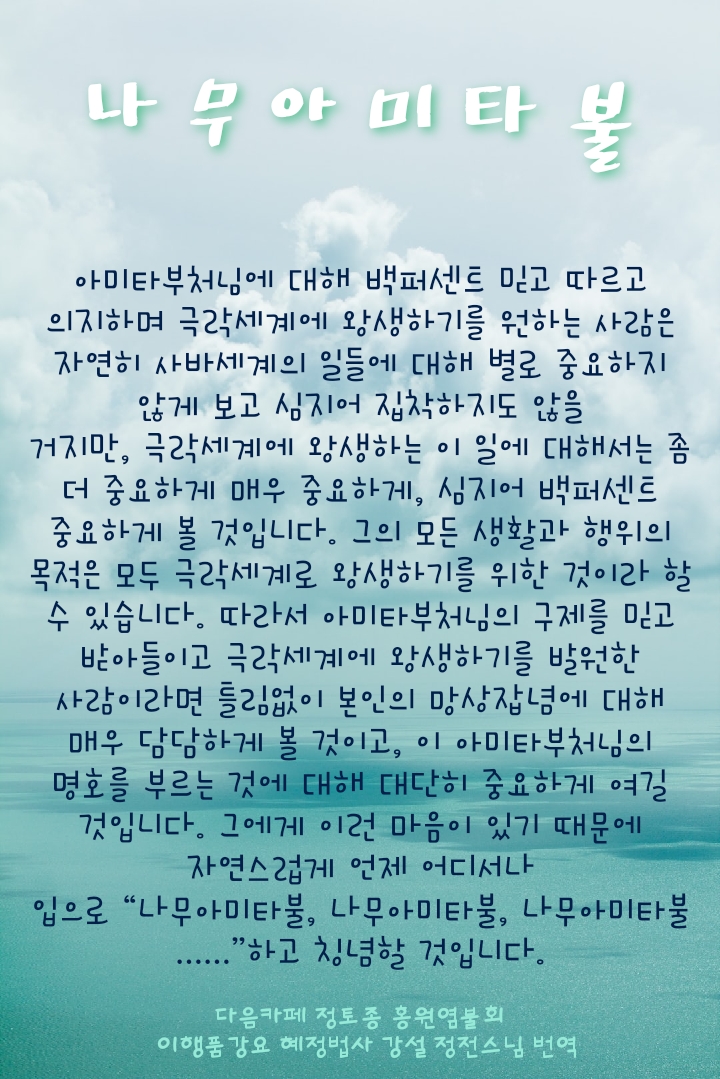 나무아미타불
아미타부처님에 대해 백퍼센트 믿고 따르고
의지하며 극락세계에 왕생하기를 원하는 사람은
자연히 사바세계의 일들에 대해 별로 중요하지
않게 보고 심지어 집착하지도 않을
거지만, 극락세계에 왕생하는 이 일에 대해서는 좀
더 중요하게 매우 중요하게, 심지어 백퍼센트
중요하게 볼 것입니다. 그의 모든 생활과 행위의
목적은 모두 극락세계로 왕생하기를 위한 것이라 할
수 있습니다. 따라서 아미타부처님의 구제를 믿고
받아들이고 극락세계에 왕생하기를 발원한
사람이라면 틀림없이 본인의 망상잡념에 대해
매우 담담하게 볼 것이고, 이 아미타부처님의
명호를 부르는 것에 대해 대단히 중요하게 여길
것입니다. 그에게 이런 마음이 있기 때문에
자연스럽게 언제 어디서나
입으로 “나무아미타불, 나무아미타불, 나무아미타불
……”하고 칭념할 것입니다.
다음카페 정토종 홍원염불회
이행품강요 혜정법사 강설 정전스님 번역